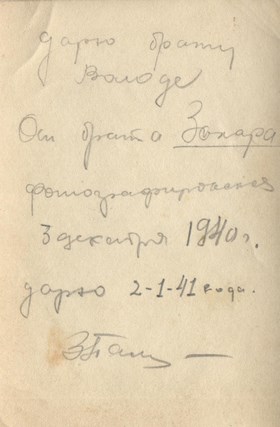 дарю брату
Володе
От брата Захара
фотографировался
3 декабря 1940 г.
дарю 2-1-41 года.